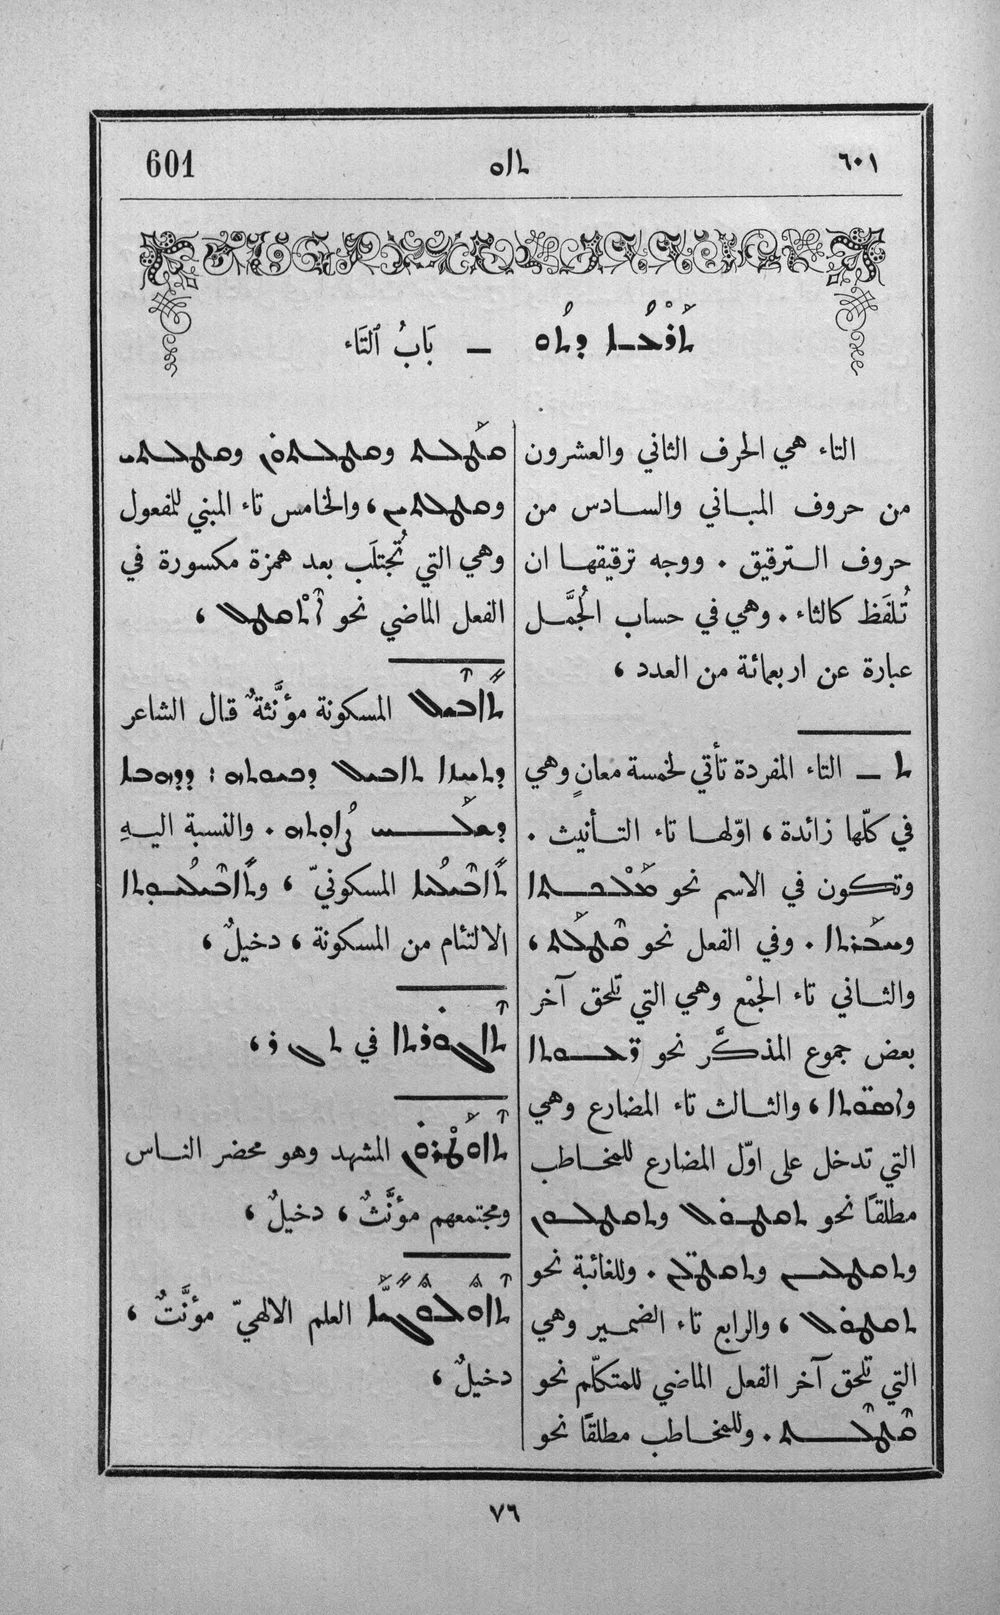 ٦٠١
ܬܐܘ
601
ܬܪܥܐ ܕܬܘ — بَابُ ٱلتَاء
التاء هي الحرف الثاني والعشرون
من حروف المباني والسادس من
حروف الترقيق . ووجه ترقيقها ان
تُلفَظ كالثاء . وهي في حساب الجُمَّل
عبارة عن اربعمائة من العدد ،
ܬ — التاء المفردة تأتي لخمسة معانٍ وهي
في كلّها زائدة ، اوّلها تاء التأنيث .
وتكون في الاسم نحو ܡܠܟܬܐ
. وفي الفعل نحو ܩܛܠܬ ،
والثاني تاء الجمْع وهي التي تلحق آخر
بعض جموع المذكَّر نحو
، والثالث تاء المضارع وهي
التي تدخل على اوّل المضارع للمخاطب
مطلقًا نحو ܬܩܛܘܠ وܬܩܛܠܘܢ
وܬܩܛܠܝܢ وܬܩܛ̈ܠܢ . وللغائبة نحو
ܬܩܛܘܠ ، والرابع تاء الضمير وهي
التي تلحق آخر الفعل الماضي للمتكلّم نحو
ܩܛܠܬ . وللمخاطب مطلقًا نحو
ܩܛܠܬ وܩܛܠܬܘܢ وܩܛܠܬܝ
وܩܛܠܬܝܢ ، والخامس تاء المبني للمفعول
وهي التي تُجتلَب بعد همزة مكسورة في
الفعل الماضي نحو ܐܬܩܛܠ ،
ܬܐܒܝܠ المسكونة مؤنَّثةٌ قال الشاعر
. والنسبة اليهِ
ܬܐܒܝܠܝܐ المسكونيّ ، وܬܐܒܝܠܝܘܬܐ
الالتئام من المسكونة ، دخيلٌ ،
ܬܐܓܘܪܬܐ في ܬܓܪ ،
ܬܐܛܪܘܢ المشهد وهو محضر الناس
ومجتمعهم مؤنَّثٌ ، دخيلٌ ،
ܬܐܘܠܘܓܝܐ العلم الالهيّ مؤنَّثٌ ،
دخيلٌ ،
٧٦